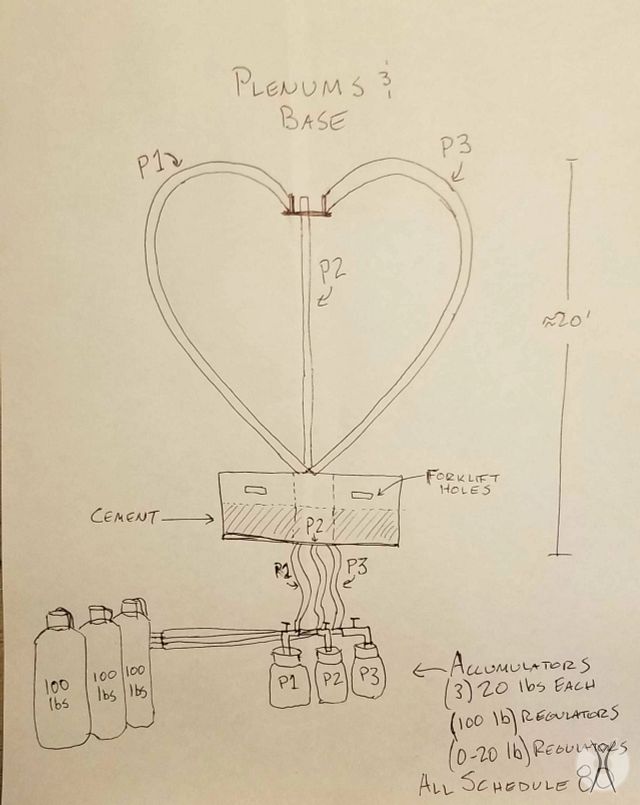 PLENUMS &
BASE
P1
P3
P2
≈20'
FORKLIFT
HOLES
CEMENT
P2
P1
P3
100
lbs
100
lbs
100
lbs
P1
P2
P3
ACCUMULATORS
(3) 20 lbs EACH
(100 lb) REGULATORS
(0-20 lb) REGULATORS
ALL SCHEDULE 80